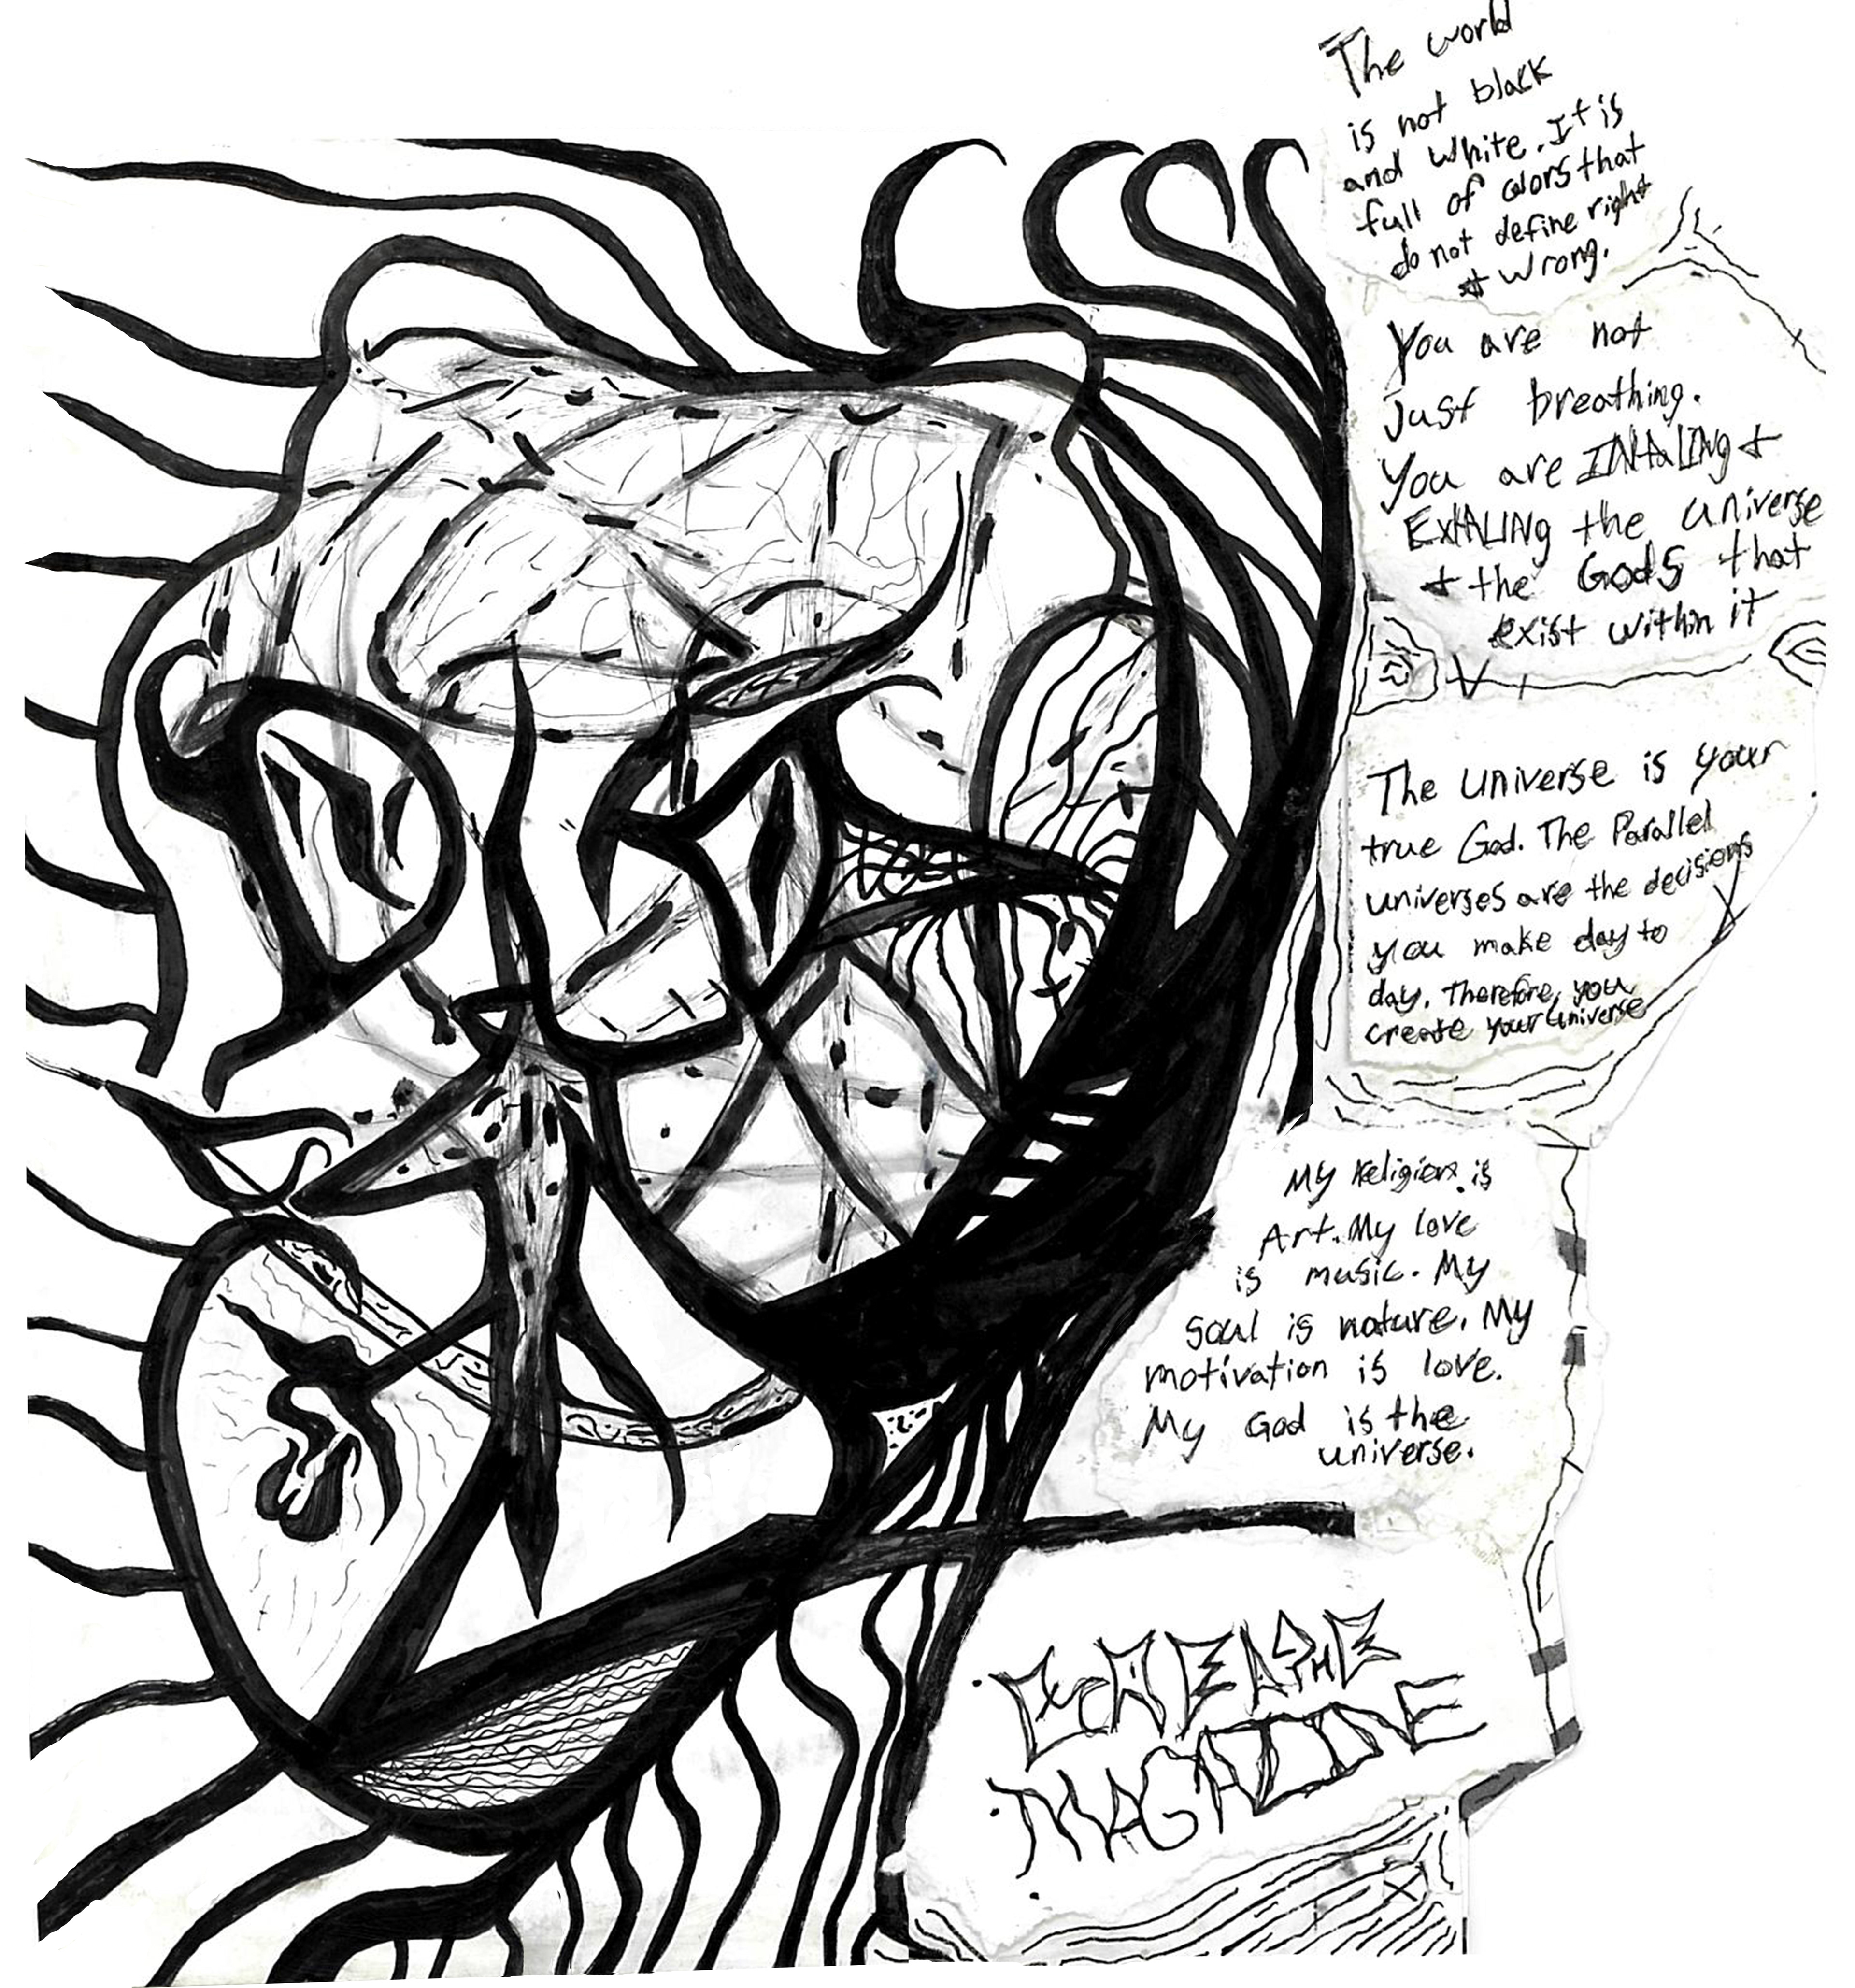 The world
is not black
and white. It is
full of colors that
do not define right
+ wrong.
You are not
Just breathing.
You are INHaLINg +
ExHALINg the universe
+ the Gods that
exist within it
The universe is your
true God. The Parallel
universes are the decisions
you make day to
day. Therefore, you
create your universe
My Religion is
Art. My love
is music. My
soul is nature. My
motivation is love.
My God is the
universe.
BREATHE
MAGAZINE